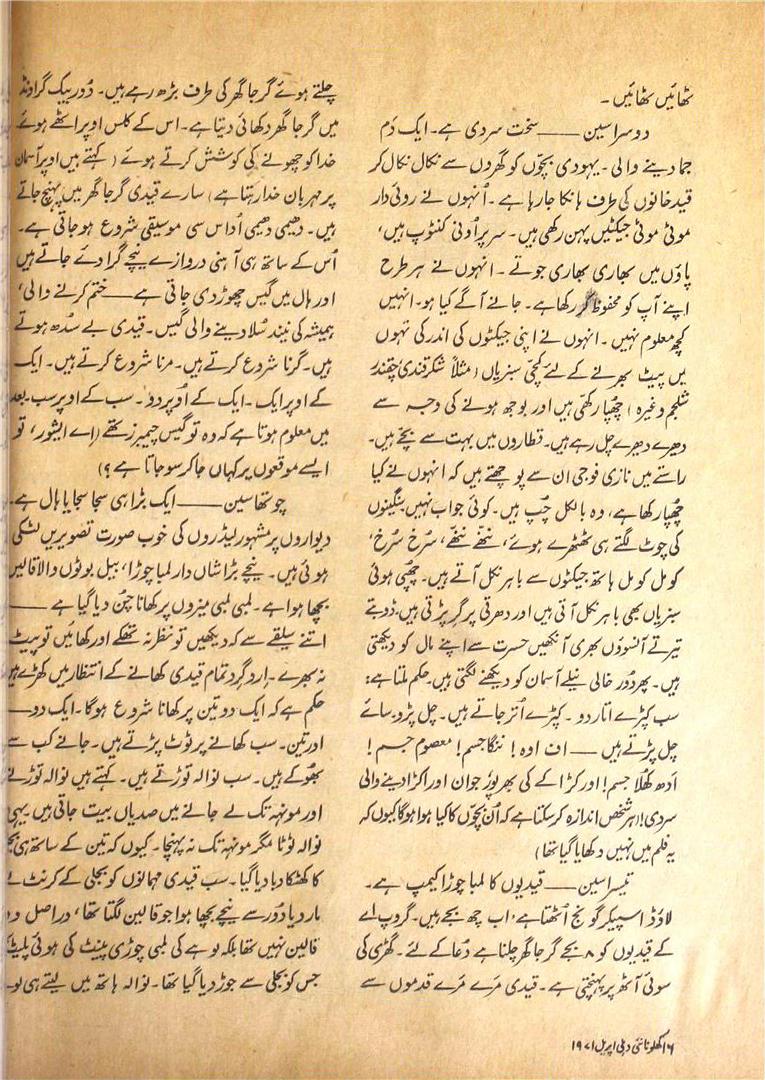 ٹھائیں ٹھائیں ۔
دوسرا سین ——— سخت سردی ہے۔ ایک دم
جما دینے والی ۔ یہودی بچّوں کو گھروں سے نکال نکال کر
قید خانوں کی طرف ہانکا جا رہا ہے ۔ اُنہوں نے روئی دار
موٹی موٹی جیکٹیں پہن رکھی ہیں۔ سر پر اُونی کنٹوپ ہیں،
پاؤں میں بھاری بھاری جوتے ۔ انہوں نے ہر طرح
اپنے آپ کو محفوظ کر رکھا ہے۔ جانے آگے کیا ہو۔ انہیں
کچھ معلوم نہیں ۔ انہوں نے اپنی جیکٹوں کی اندر کی تہوں
میں پیٹ بھرنے کے لئے کچّی سبزیاں (مثلاً شکرقندی چقندر
شلجم وغیرہ) چھپا رکھی ہیں اور بوجھ ہونے کی وجہ سے
دھیرے دھیرے چل رہے ہیں۔ قطاروں میں بہت سے بچّے ہیں۔
راستے میں نازی فوجی ان سے پوچھتے ہیں کہ انہوں نے کیا
چھپا رکھا ہے، وہ بالکل چپ ہیں۔ کوئی جواب نہیں۔ سنگینوں
کی چوٹ لگتے ہی ٹھٹھرے ہوئے، ننھّے ننھّے، سرخ سُرخ،
کومل کومل ہاتھ جیکٹوں سے باہر نکل آتے ہیں۔ چھپی ہوئی
سبزیاں بھی باہر نکل آتی ہیں اور دھرتی پر گر پڑتی ہیں۔ ڈوبتے
تیرتے آنسوؤں بھری آنکھیں حسرت سے اپنے مال کو دیکھتی
ہیں۔ پھر دُور خالی نیلے آسمان کو دیکھنے لگتی ہیں۔ حکم ملتا ہے:
سب کپڑے اتار دو ۔ کپڑے اُتر جاتے ہیں۔ چل پڑو۔ سائے
چل پڑتے ہیں —— اف اوہ! ننگا جسم! معصوم جسم!
اَدھ کھُلا جسم! اور کڑاکے کی بھرپور جوان اور اکڑا دینے والی
سردی! (ہر شخص اندازہ کر سکتا ہے کہ اُن بچّوں کا کیا ہوا ہوگا کیوں کہ
یہ فلم میں نہیں دکھایا گیا تھا)
تیسرا سین ——— قیدیوں کا لمبا چوڑا کیمپ ہے۔
لاؤڈ اسپیکر گونج اُٹھتا ہے، اب چھ بجے ہیں۔ گروپ اے
کے قیدیوں کو ۸ بجے گرجا گھر چلنا ہے دُعا کے لئے ۔ گھڑی کی
سوئی آٹھ پر پہنچتی ہے۔ قیدی مَرے مَرے قدموں سے
چلتے ہوئے گرجا گھر کی طرف بڑھ رہے ہیں۔ دُور بیک گراؤنڈ
میں گرجا گھر دکھائی دیتا ہے۔ اس کے کلس اوپر اٹھے ہوئے
خدا کو چھونے کی کوشش کرتے ہوئے (کہتے ہیں اوپر آسمان
پر مہربان خدا رہتا ہے) سارے قیدی گرجا گھر میں پہنچ جاتے
ہیں۔ دھیمی دھیمی اُداس سی موسیقی شروع ہو جاتی ہے۔
اُس کے ساتھ ہی آہنی دروازے نیچے گرا دئے جاتے ہیں
اور ہال میں گیس چھوڑ دی جاتی ہے —— ختم کرنے والی،
ہمیشہ کی نیند سُلا دینے والی گیس۔ قیدی بے سُدھ ہوتے
ہیں۔ گرنا شروع کرتے ہیں۔ مرنا شروع کرتے ہیں۔ ایک
کے اوپر ایک ۔ ایک کے اُوپر دو ۔ سب کے اوپر سب۔ بعد
میں معلوم ہوتا ہے کہ وہ تو گیس چیمبرز تھے (اے ایشور، تو
ایسے موقعوں پر کہاں جا کر سو جاتا ہے؟)
چوتھا سین ——— ایک بڑا ہی سجا سجایا ہال ہے۔
دیواروں پر مشہور لیڈروں کی خوب صورت تصویریں لٹکی
ہوئی ہیں۔ نیچے بڑا شان دار لمبا چوڑا، بیل بوٹوں والا قالین
بچھا ہوا ہے۔ لمبی لمبی میزوں پر کھانا چُن دیا گیا ہے ——
اتنے سلیقے سے کہ دیکھیں تو نظر نہ تھکے اور کھائیں تو پیٹ
نہ بھرے ۔ اِرد گرد تمام قیدی کھانے کے انتظار میں کھڑے ہیں
حکم ہے کہ ایک دو تین پر کھانا شروع ہوگا۔ ایک دو ——
اور تین۔ سب کھانے پر ٹوٹ پڑتے ہیں۔ جانے کب سے
بھُوکے ہیں۔ سب نوالہ توڑتے ہیں۔ کہتے ہیں نوالہ توڑنے
اور مونہہ تک لے جانے میں صدیاں بیت جاتی ہیں یہی
نوالہ ٹوٹا مگر مونہہ تک نہ پہنچا۔ کیوں کہ تین کے ساتھ ہی بجلی
کا کھٹکا دبا دیا گیا۔ سب قیدی مہمانوں کو بجلی کے کرنٹ نے
مار دیا دُور سے نیچے بچھا ہوا جو قالین لگتا تھا، دراصل وہ
قالین نہیں تھا بلکہ لوہے کی لمبی چوڑی پینٹ کی ہوئی پلیٹ
جس کو بجلی سے جوڑ دیا گیا تھا۔ نوالہ ہاتھ میں لیتے ہی لو۔
۱۶ کھلونا نئی دہلی اپریل ۱۹۷۱